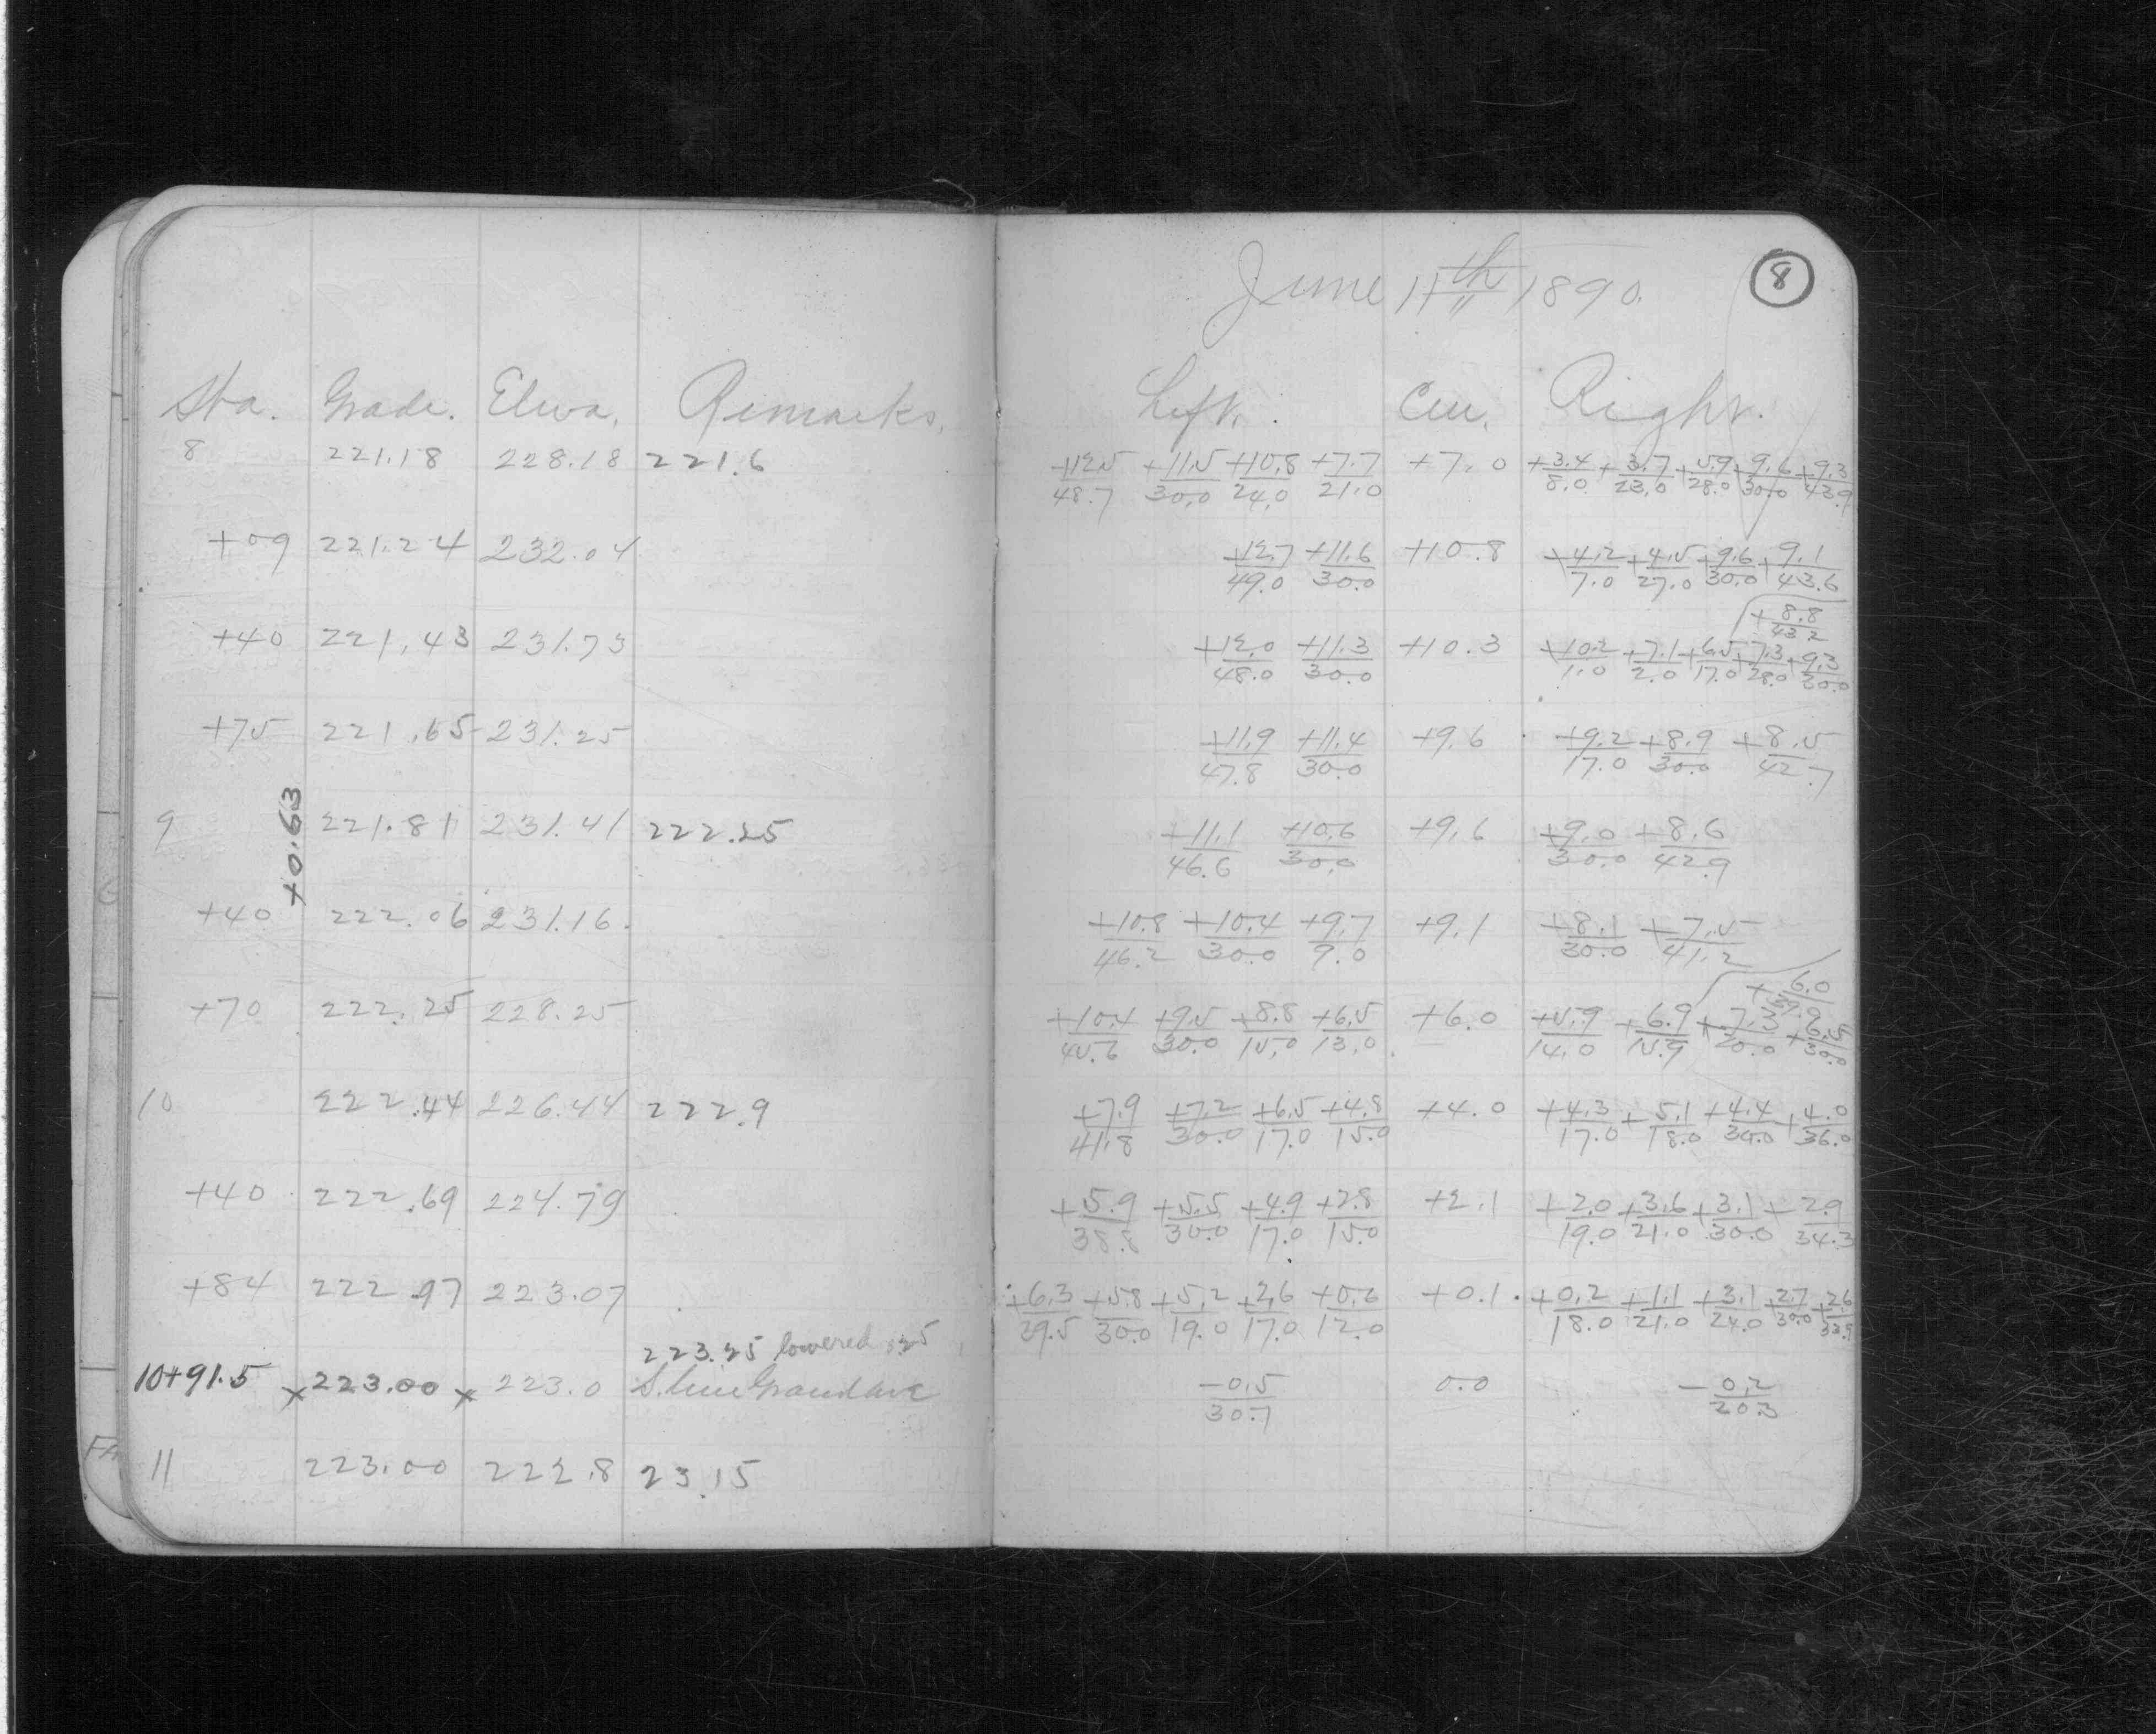 June 11th 1890. 8
Sta. Grade. Eleva. Remarks. Left. Cen. Right.
8 221.18 228.18 221.6 +12.5/48.7 +11.5/30.0 +10.8/24.0 +7.7/21.0 +7.0 +3.4/8.0 +3.7/23.0 +5.9/28.0 +9.6/30.0 +9.3/43.9
+09 221.24 232.04 +12.7/49.0 +11.6/30.0 +10.8 +4.2/7.0 +4.5/27.0 +9.6/30.0 +9.1/43.6
+40 221.43 231.73 +12.0/48.0 +11.3/30.0 +10.3 +10.2/1.0 +7.1/2.0 +6.5/17.0 +7.3/28.0 +9.3/30.0 +8.8/43.2
+75 221.65 231.25 +11.9/47.8 +11.4/30.0 +9.6 +9.2/17.0 +8.9/30.0 +8.5/42.7
+0.63
9 221.81 231.41 222.25 +11.1/46.6 +10.6/30.0 +9.6 +9.0/30.0 +8.6/42.9
+40 222.06 231.16. +10.8/46.2 +10.4/30.0 +9.7/9.0 +9.1 +8.1/30.0 +7.5/41.2
+70 222.25 228.25 +10.4/45.6 +9.5/30.0 +8.8/15.0 +6.5/13.0 +6.0 +5.9/14.0 +6.9/15.9 +7.3/20.0 +6.5/30.0 +6.0/39.0
10 222.44 226.44 222.9 +7.9/41.8 +7.2/30.0 +6.5/17.0 +4.8/15.0 +4.0 +4.3/17.0 +5.1/18.0 +4.4/30.0 +4.0/36.0
+40 222.69 224.79 +5.9/38.8 +5.5/30.0 +4.9/17.0 +2.8/15.0 +2.1 +2.0/19.0 +3.6/21.0 +3.1/30.0 +2.9/34.3
+84 222.97 223.07 +6.3/39.5 +5.8/30.0 +5.2/19.0 +2.6/17.0 +0.6/12.0 +0.1 +0.2/18.0 +1.1/21.0 +3.1/24.0 +2.7/30.0 +2.6/33.9
223.25 lowered .25
10+91.5 x 223.00 x 223.0 S. line Grand ave -0.5/30.7 0.0 -0.2/20.3
11 223.00 222.8 23.15